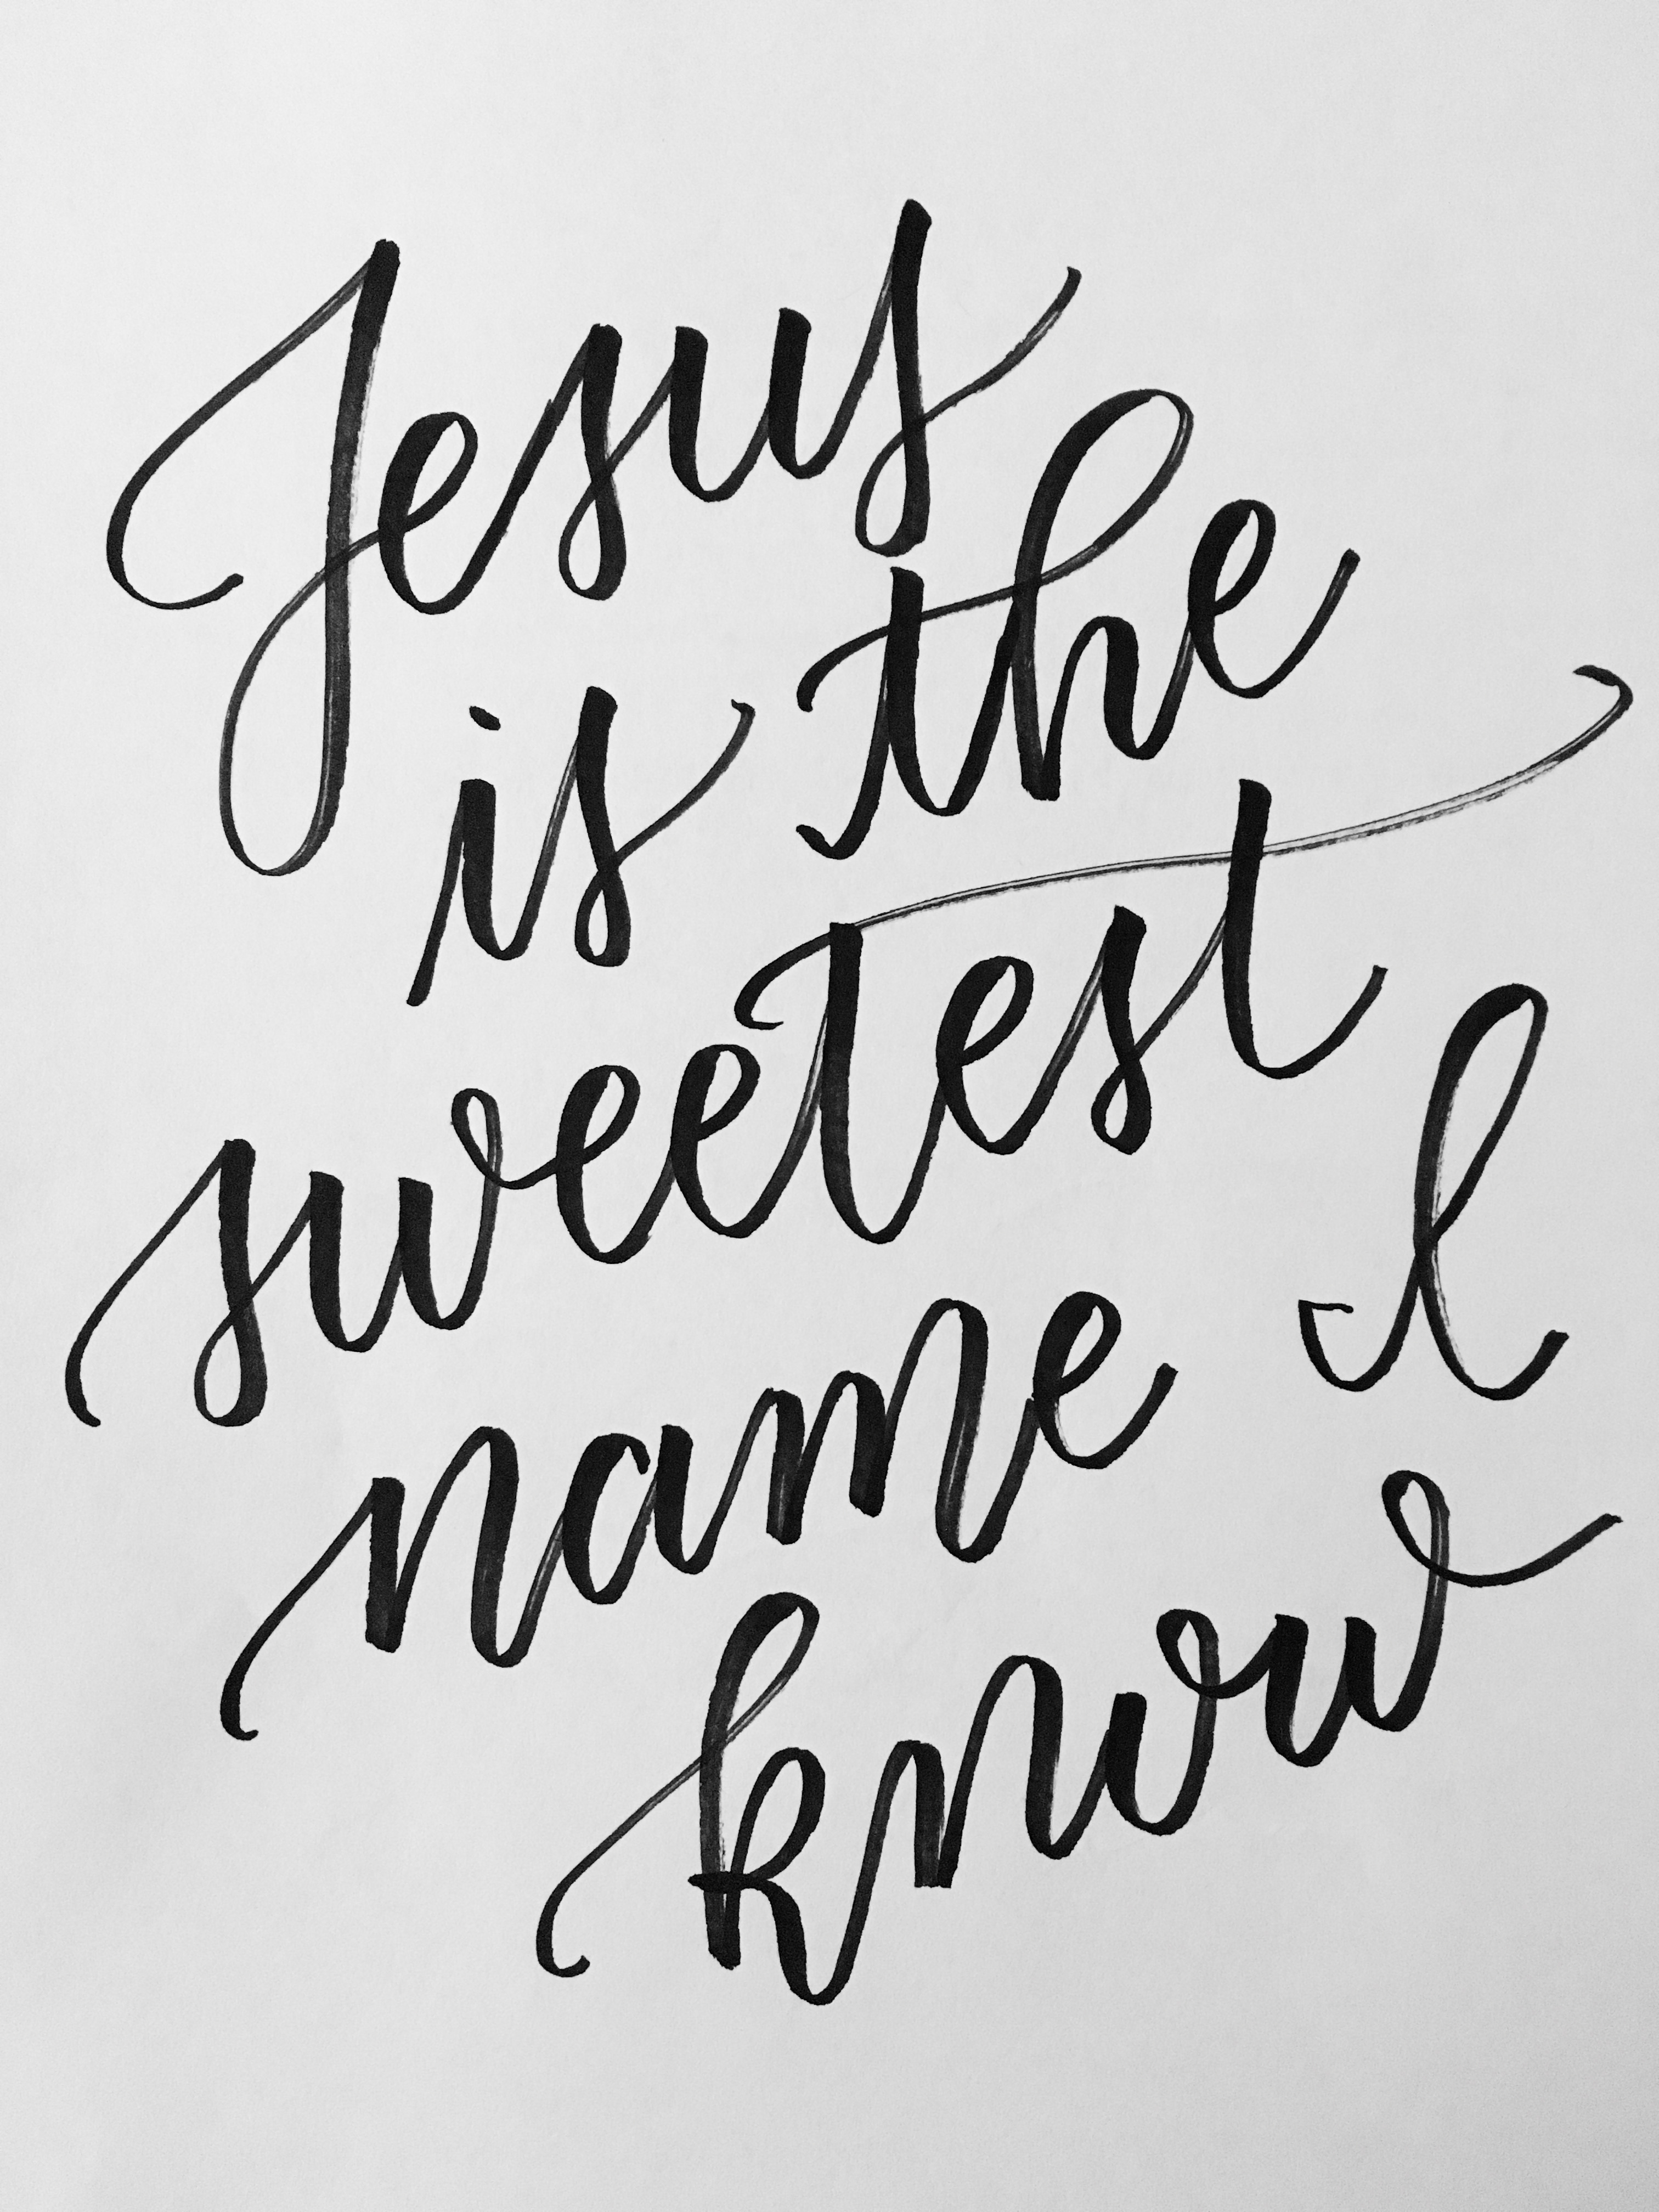 Jesus
is the
sweetest
name I
know